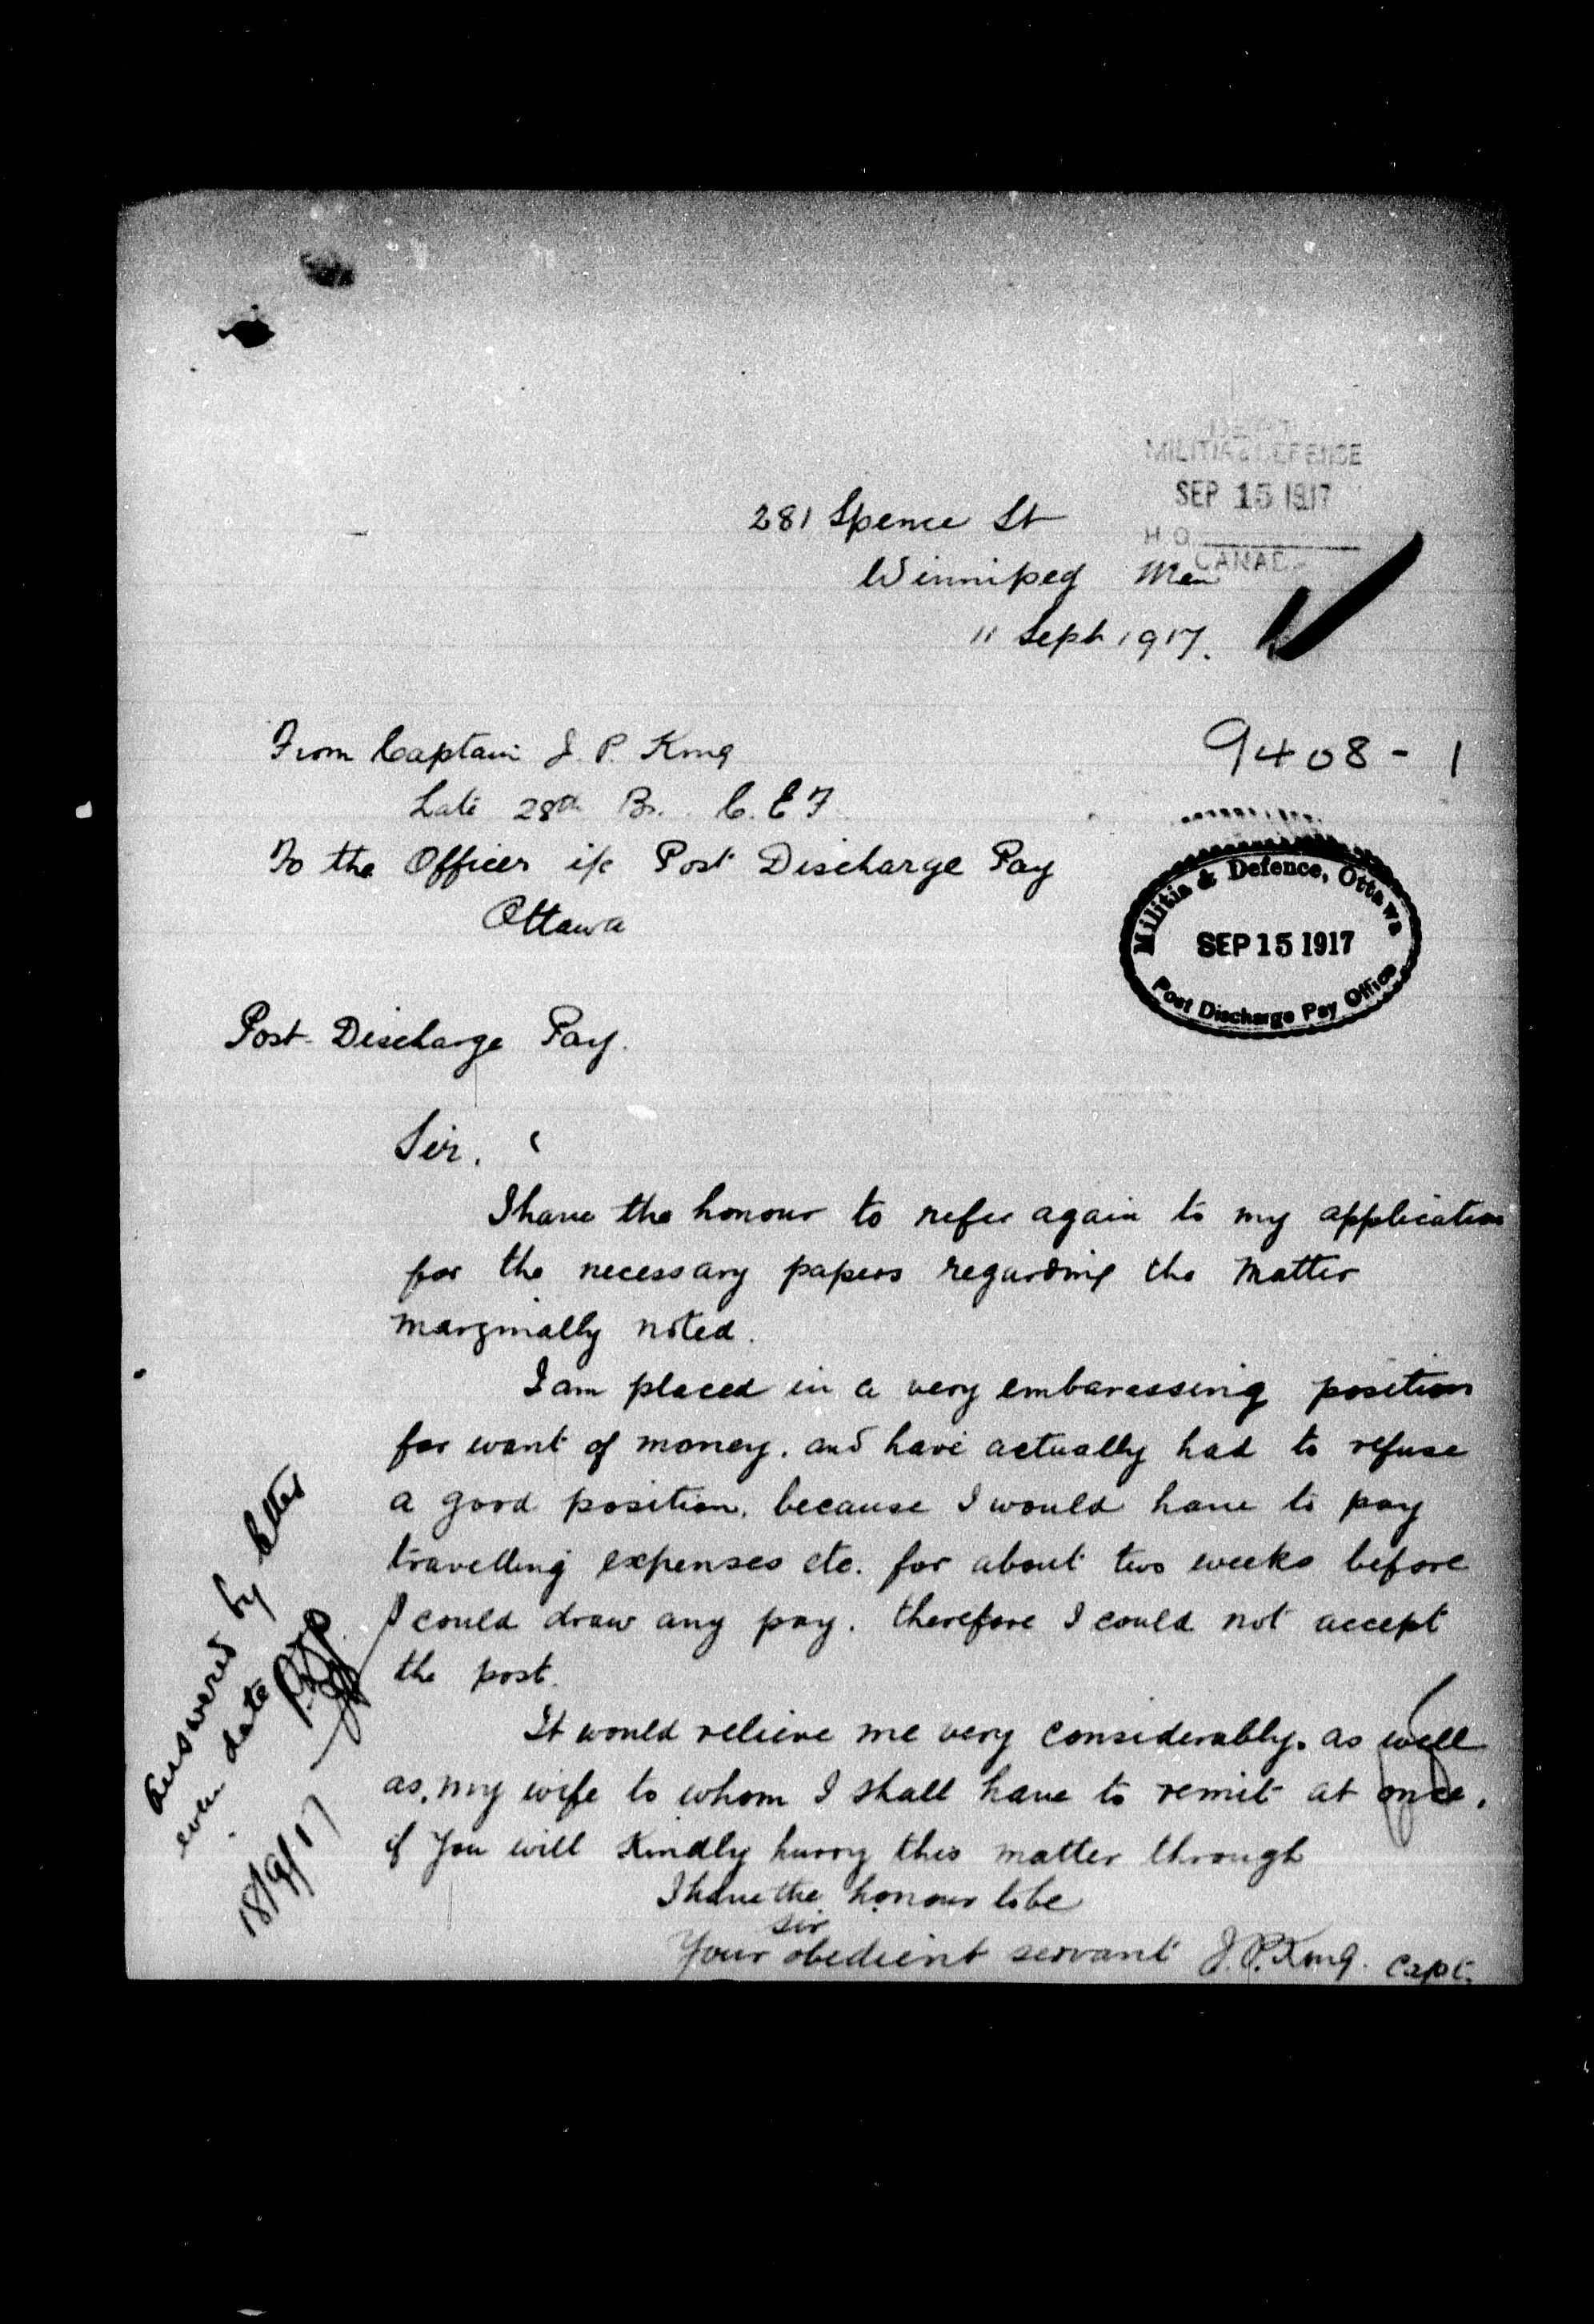 DEPT
MILITIA & DEFENCE
SEP 15 1917
H.Q.
CANADA
281 Spence St
Winnipeg Man
11 Sept 1917.
From Captain J. P. King
9408-1
Late 28th Bn. C.E.F.
To the Officer i/c Post Discharge Pay
Ottawa
Militia & Defence, Ottawa
SEP 15 1917
Post Discharge Pay Office
Post Discharge Pay.
Sir.
I have the honour to refer again to my application
for the necessary papers regarding the matter
marginally noted.
I am placed in a very embaressing position
for want of money. and have actually had to refuse
a good position. because I would have to pay
travelling expenses etc. for about two weeks before
I could draw any pay. therefore I could not accept
the post.
It would relieve me very considerably. as well
as my wife to whom I shall have to remit at once.
if you will kindly hurry this matter through
I have the honour to be
Sir
Your obedient servant J. P. King. Capt.
Answered by letter
even date
18/9/17